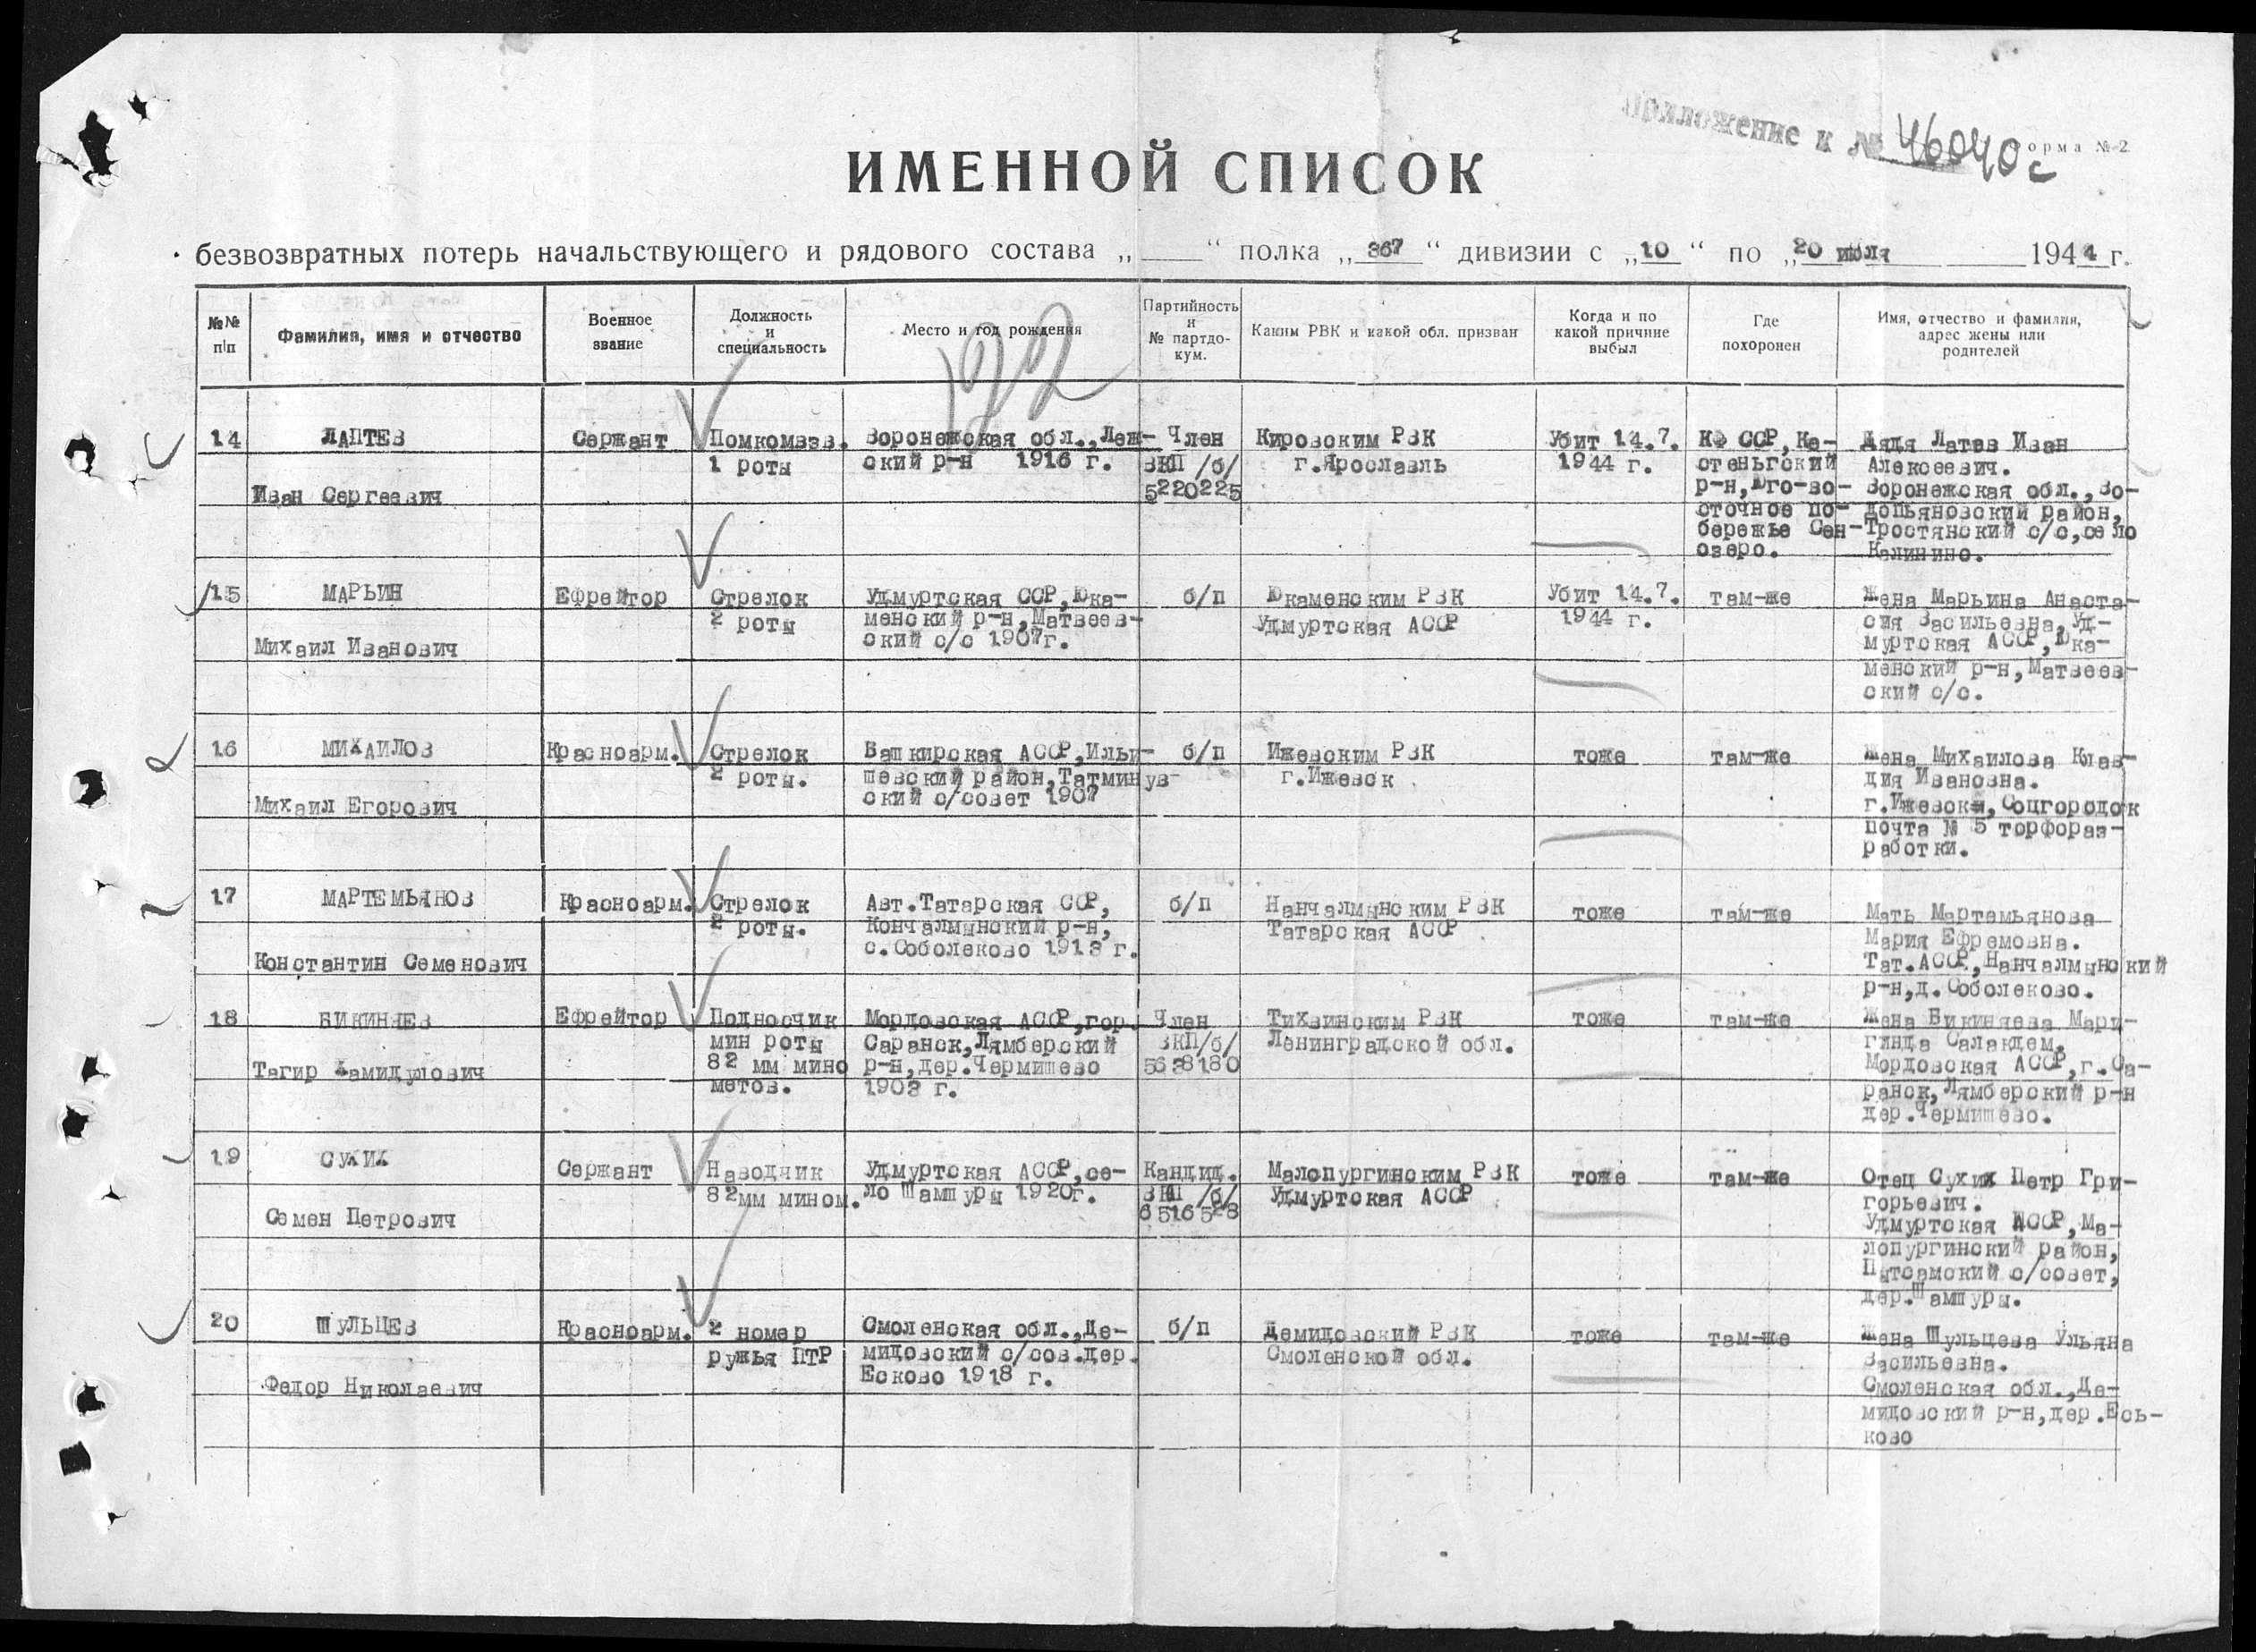 Приложение к № 46040с
орма № 2
ИМЕННОЙ СПИСОК
безвозвратных потерь начальствующего и рядового состава „ “ полка „367“ дивизии с „10“ по „20 июля 1944 г.
№№ п/п
Фамилия, имя и отчество
Военное звание
Должность и специальность
Место и год рождения
Партийность и № партдо-кум.
Каким РВК и какой обл. призван
Когда и по какой причине выбыл
Где похоронен
Имя, отчество и фамилия, адрес жены или родителей
122
14
ЛАПТЕВ
Иван Сергеевич
Сержант
Помкомвзв.
1 роты
Воронежская обл.,Леж-
ский р-н 1916 г.
Член
ВКП /б/
5220225
Кировским РВК
г.Ярославль
Убит 14.7.
1944 г.
КФ ССР, Ке-
стеньгский
р-н,Юго-во-
сточное по-
бережье Сен-
озеро.
Дядя Латев Иван
Алексеевич.
Воронежская обл.,Во-
допьяновский район,
Тростянский с/с,село
Калинино.
15
МАРЬИН
Михаил Иванович
Ефрейтор
Стрелок
2 роты
Удмуртская ССР,Юка-
менский р-н,Матвеев-
ский с/с 1907г.
б/п
Юкаменским РВК
Удмуртская АССР
Убит 14.7.
1944 г.
там-же
Жена Марьина Анаста-
сия Васильевна,Уд-
муртская АССР,Юка-
менский р-н,Матвеев-
ский с/с.
16
МИХАИЛОВ
Михаил Егорович
Красноарм.
Стрелок
2 роты.
Башкирская АССР,Ильи-
шевский район,Татминув-
ский с/совет 1907
б/п
Ижевским РВК
г.Ижевск
тоже
там-же
Жена Михаилова Клав-
дия Ивановна.
г.Ижевск,Соцгородок
почта № 5 торфораз-
работки.
17
МАРТЕМЬЯНОВ
Константин Семенович
Красноарм.
Стрелок
2 роты.
Авт.Татарская ССР,
Кончалмынский р-н,
с.Соболеково 1913 г.
б/п
Нанчалмынским РВК
Татарская АССР
тоже
там-же
Мать Мартемьянова
Мария Ефремовна.
Тат.АССР,Нанчалмынский
р-н,д.Соболеково.
18
БИКИНЯЕВ
Тагир Хамидулович
Ефрейтор
Подносчик
мин роты
82 мм мино
метов.
Мордовская АССР,гор.
Саранск,Лямберский
р-н,дер.Чермишево
1903 г.
Член
ВКП/б/
5638180
Тихвинским РВК
Ленинградской обл.
тоже
там-же
Жена Бикиняева Мари-
гинда Салакдем.
Мордовская АССР,г.Са-
ранск,Лямберский р-н
дер.Чермишево.
19
СУХИХ
Семен Петрович
Сержант
Наводчик
82мм мином.
Удмуртская АССР,се-
ло Шампуры 1920г.
Кандид.
ВКП /б/
6516528
Малопургинским РВК
Удмуртская АССР
тоже
там-же
Отец Сухих Петр Гри-
горьевич.
Удмуртская АССР,Ма-
лопургинский район,
Пытсамский с/совет,
дер.Шампуры.
20
ШУЛЬЦЕВ
Федор Николаевич
Красноарм.
2 номер
ружья ПТР
Смоленская обл.,Де-
мидовский с/сов.дер.
Есково 1918 г.
б/п
Демидовский РВК
Смоленской обл.
тоже
там-же
Жена Шульцева Ульяна
Васильевна.
Смоленская обл.,Де-
мидовский р-н,дер.Есь-
ково